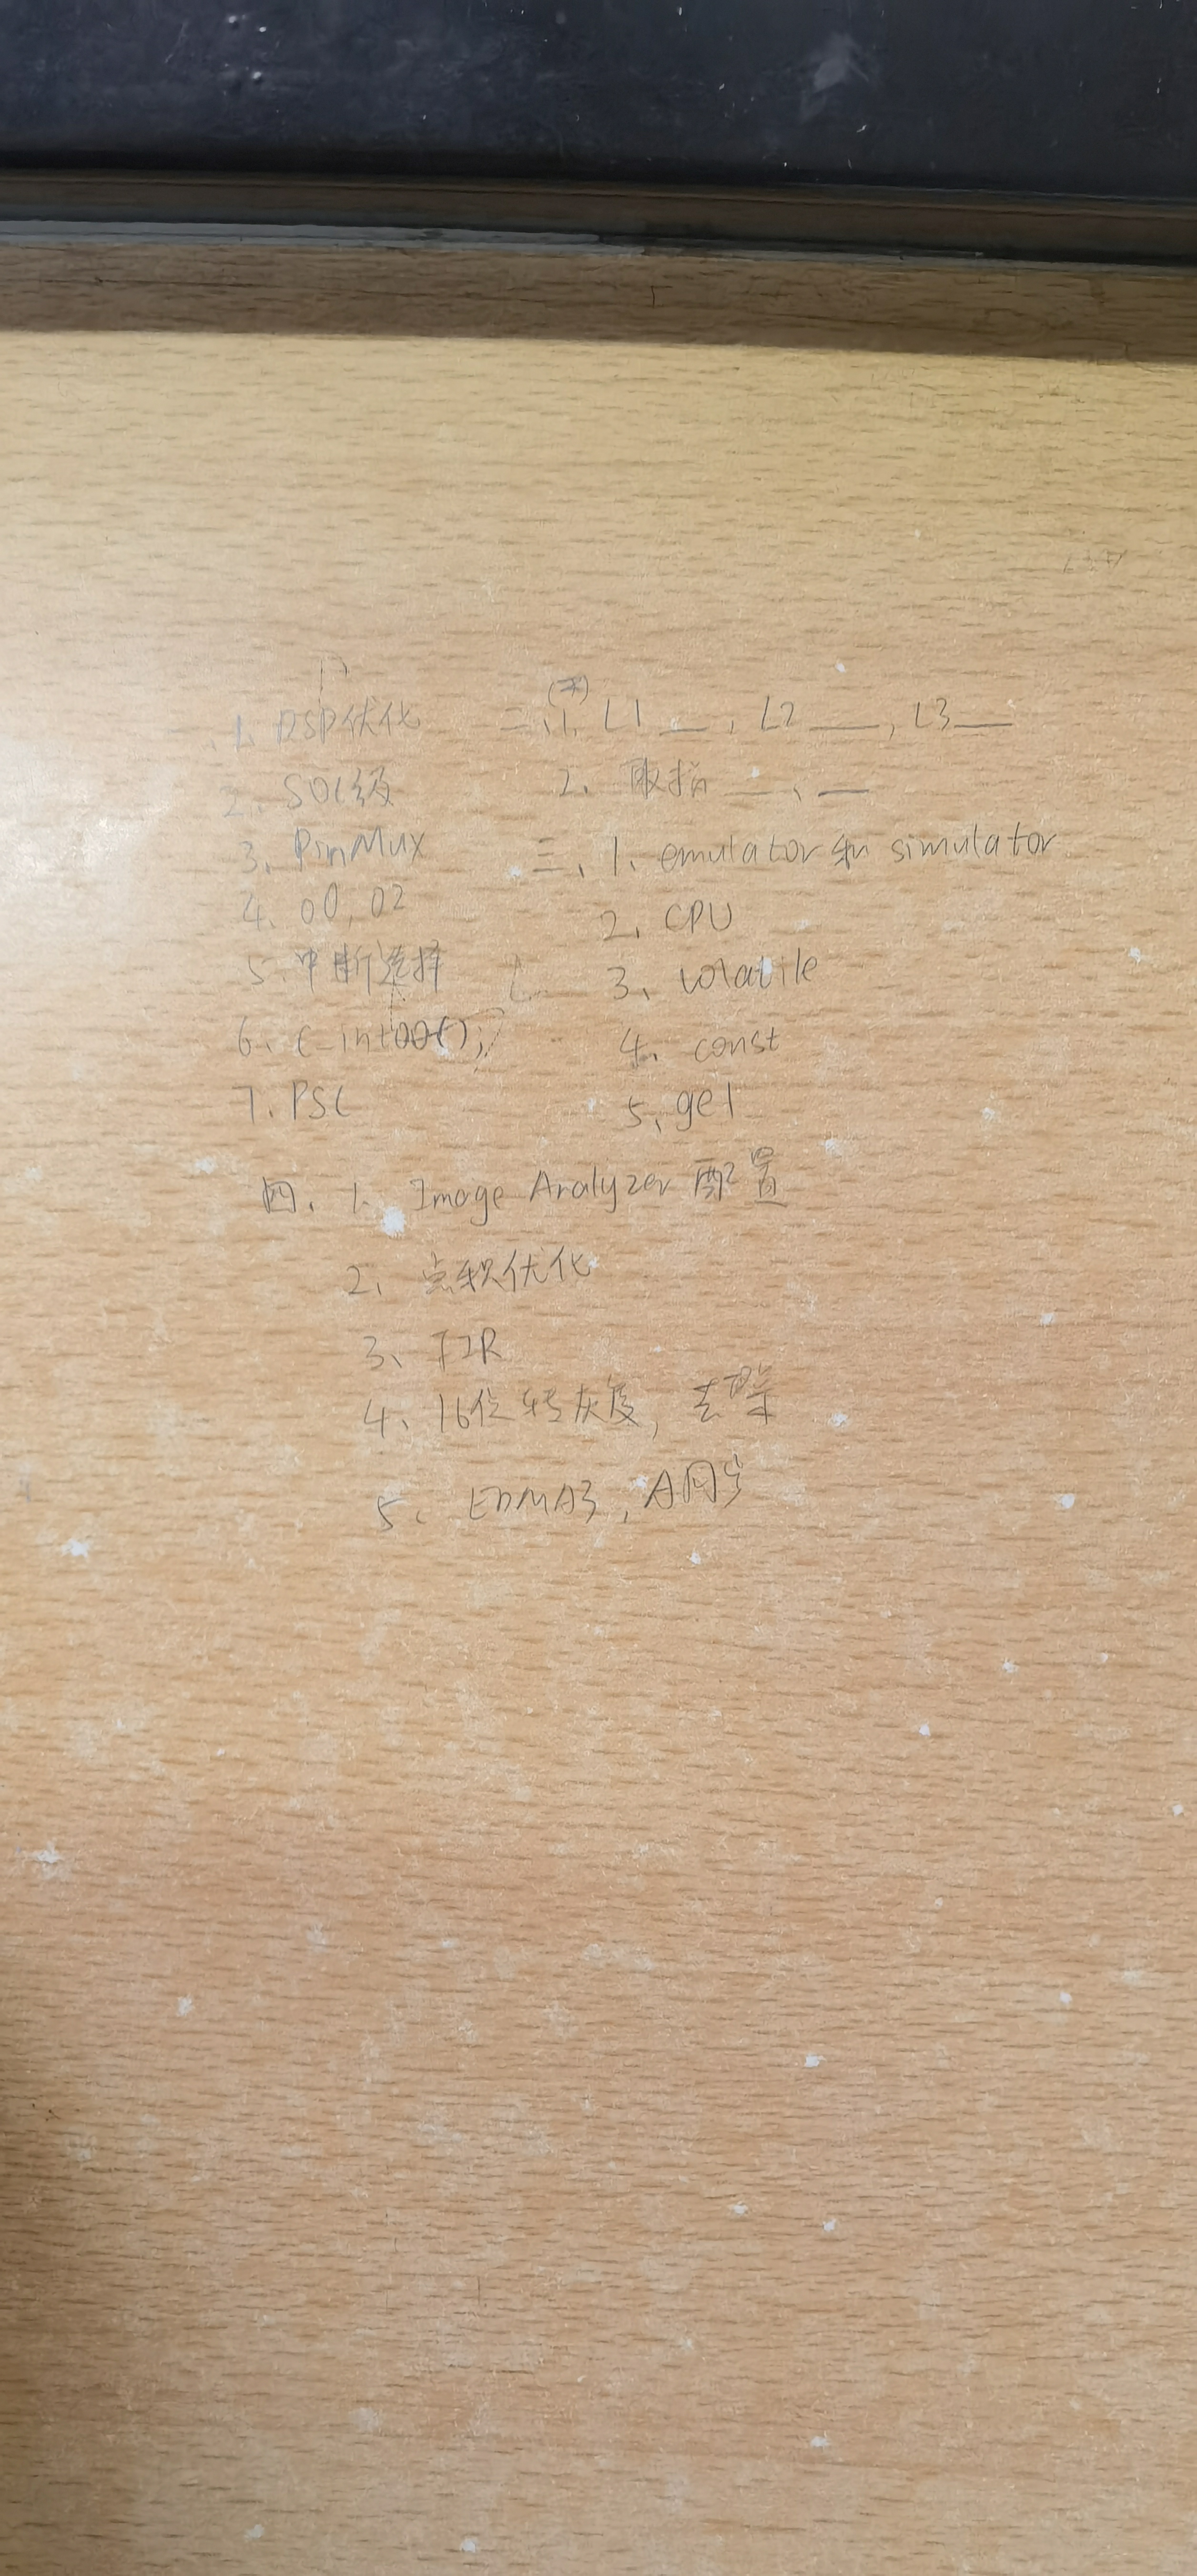 1. DSP优化
2. SOC级
3. PinMux
4. o0, o2
5. 中断选择
6. c_int00();
7. PSC
二、1. L1__, L2__, L3__
2. 取指__、__
三、1. emulator和simulator
2、CPU
3、volatile
4、const
5、gel
四、1、Image Analyzer 配置
2、点积优化
3、FIR
4、16位转灰度, 去噪
5、EDMA3, A同步